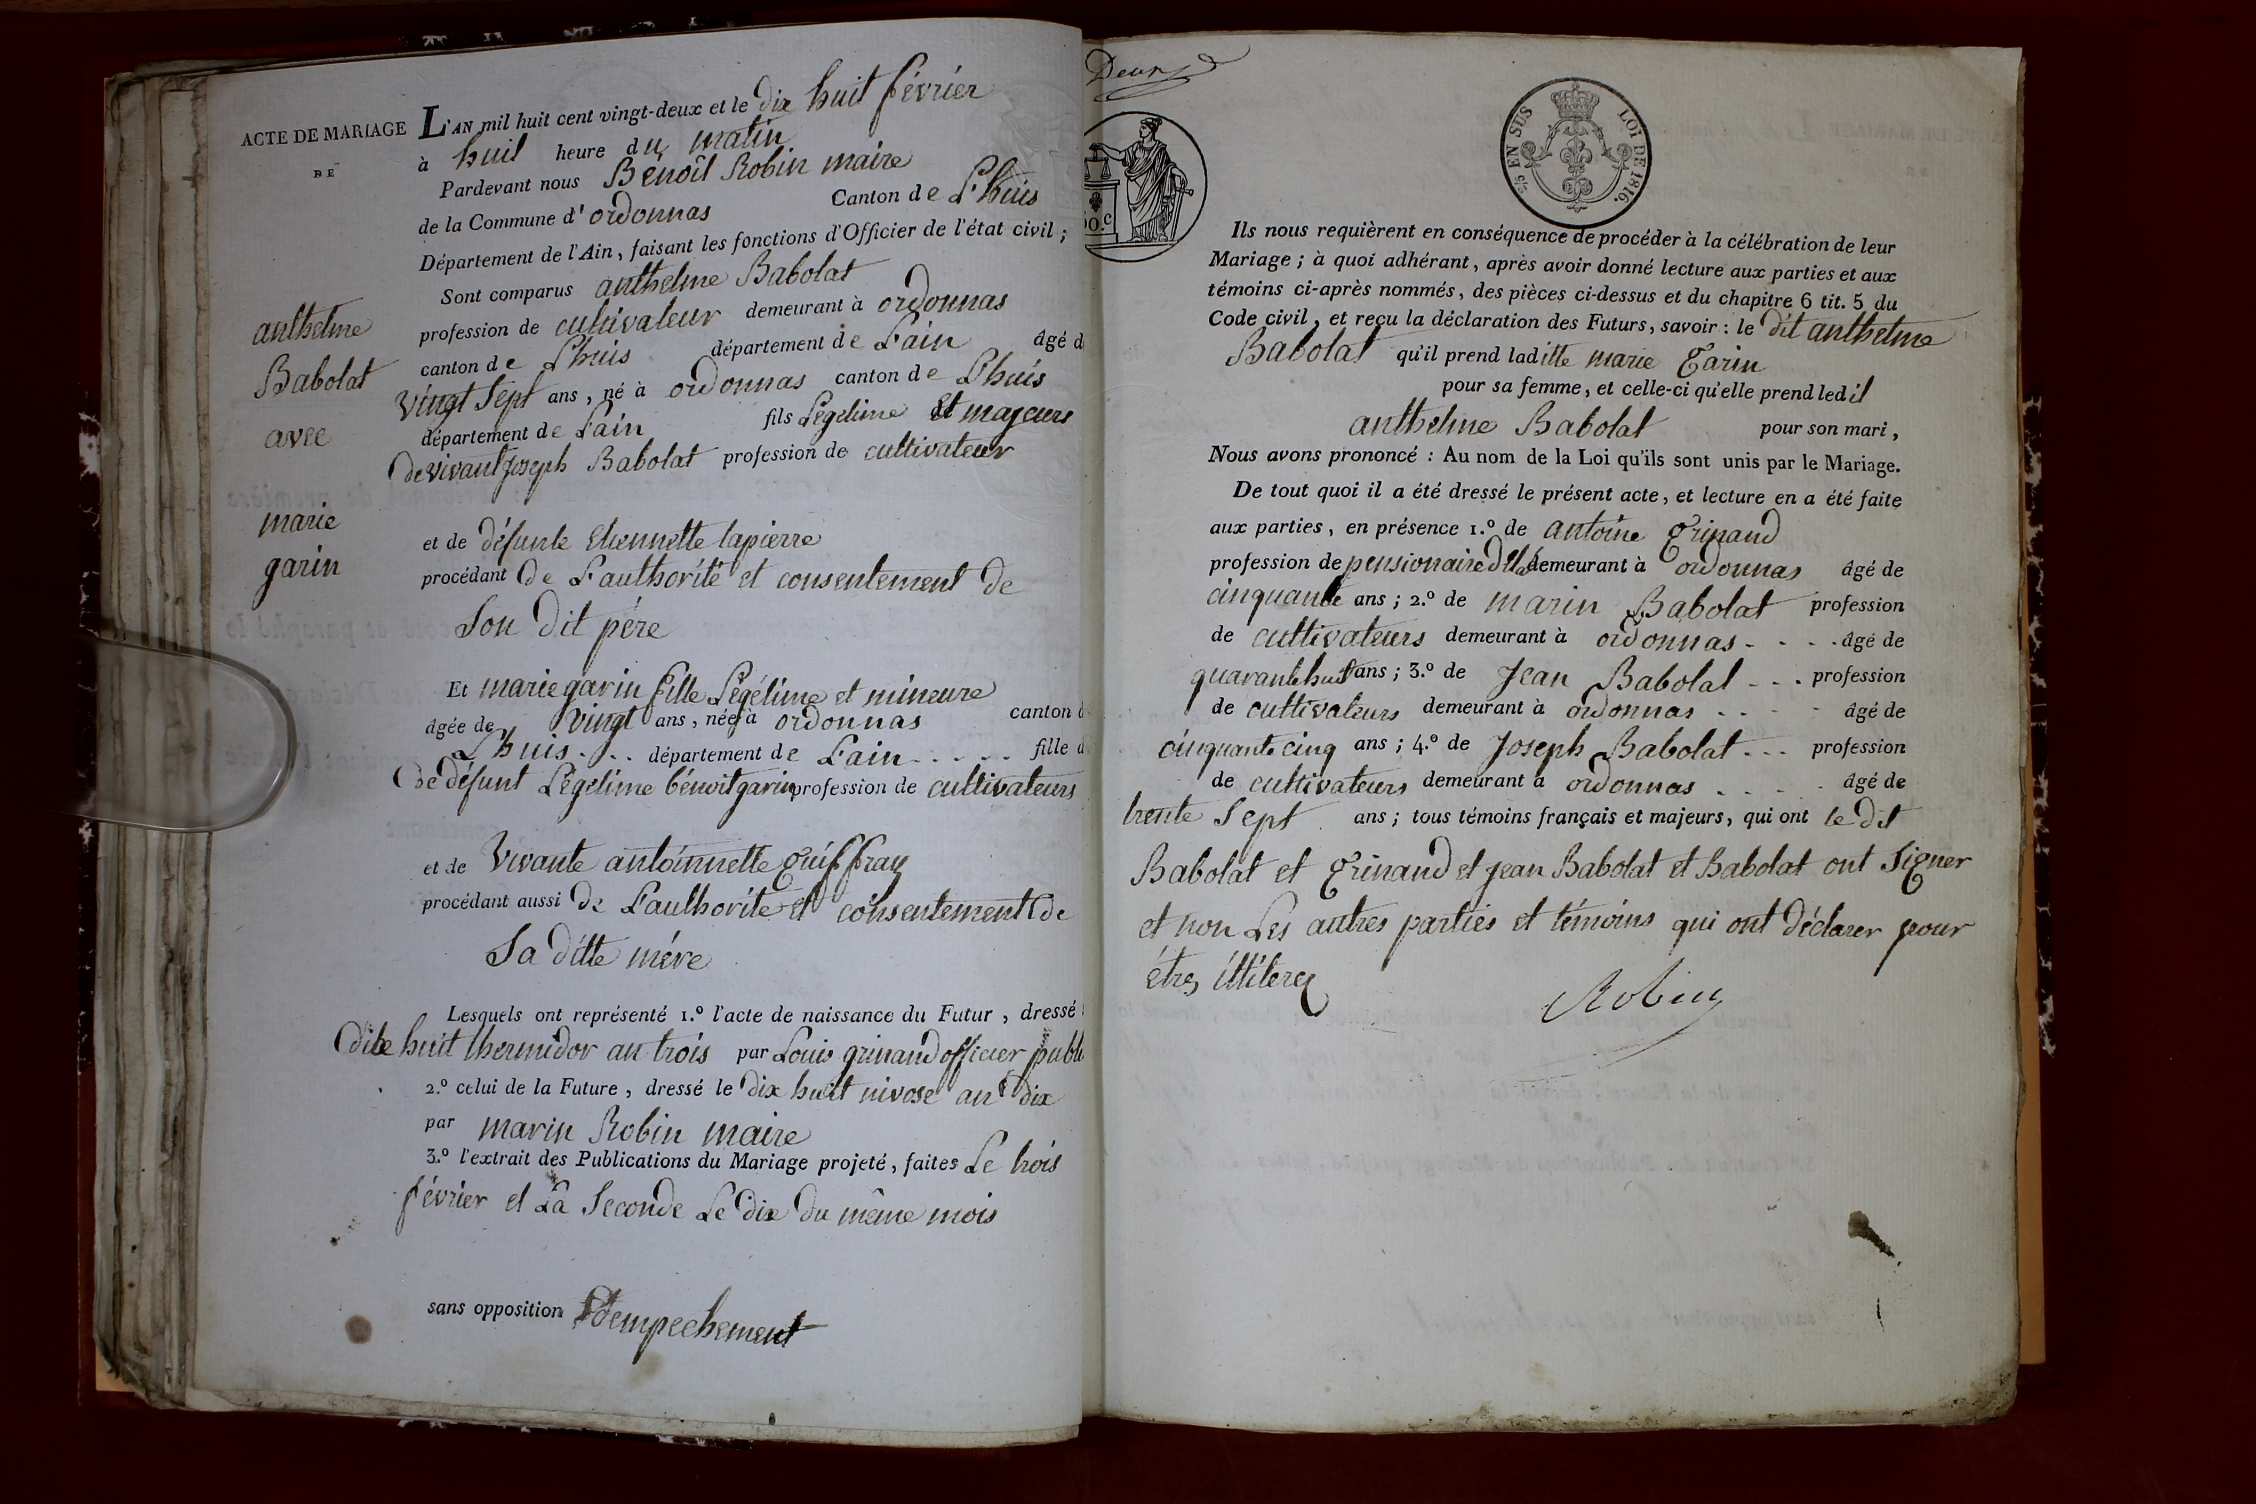 ACTE DE MARIAGE
DE
anthelme
Babolat
avec
marie
garin
L'AN mil huit cent vingt-deux et le dix huit février
à huit heure du matin
Pardevant nous Benoît Robin maire
de la Commune d'ordonnas Canton de L'huis
Département de l'Ain, faisant les fonctions d'Officier de l'état civil;
Sont comparus anthelme Babolat
profession de cultivateur demeurant à ordonnas
canton de L'huis département de L'ain âgé d
vingt sept ans, né à ordonnas canton de L'huis
département de L'ain fils Légetime Et majeurs
de vivant joseph Babolat profession de cultivateur
et de défunte Etiennette lapierre
procédant de L'authorité et consentement de
Son dit pére
Et marie garin fille Légétime et mineure
âgée de vingt ans, née à ordonnas canton d
L'huis . . . département de L'ain . . . . . fille d
de défunt Légetime bénoit garin profession de cultivateurs
et de vivante antoinnette guiffray
procédant aussi de L'authorite et consentement de
Sa ditte mére
Lesquels ont représenté 1.º l'acte de naissance du Futur, dressé
huit thermidor an trois par Louis grinand officier publi
2.º celui de la Future, dressé le dix huit nivose an dix
par marin Robin maire
3.º l'extrait des Publications du Mariage projeté, faites Le trois
février et La Seconde Le dix du même mois
sans opposition empechement
Deux
EN SUS LOI DE 1816.
0.c
Ils nous requièrent en conséquence de procéder à la célébration de leur
Mariage; à quoi adhérant, après avoir donné lecture aux parties et aux
témoins ci-après nommés, des pièces ci-dessus et du chapitre 6 tit. 5 du
Code civil, et reçu la déclaration des Futurs, savoir: le dit anthelme
Babolat qu'il prend laditte marie Garin
pour sa femme, et celle-ci qu'elle prend ledit
anthelme Babolat pour son mari,
Nous avons prononcé: Au nom de la Loi qu'ils sont unis par le Mariage.
De tout quoi il a été dressé le présent acte, et lecture en a été faite
aux parties, en présence 1.º de antoine Grinand
profession de pensionaire demeurant à ordonnas âgé de
cinquante ans; 2.º de marin Babolat profession
de cultivateurs demeurant à ordonnas - - - - âgé de
quarante huit ans; 3.º de Jean Babolat - - - profession
de cultivateurs demeurant à ordonnas . . - - âgé de
cinquante cinq ans; 4.º de Joseph Babolat - - - profession
de cultivateurs demeurant à ordonnas . . . . . âgé de
trente Sept ans; tous témoins français et majeurs, qui ont le dit
Babolat et Grinand et jean Babolat et Babolat ont Signer
et non Les autres parties et témoins qui ont déclarer pour
étres illiteres
Robin